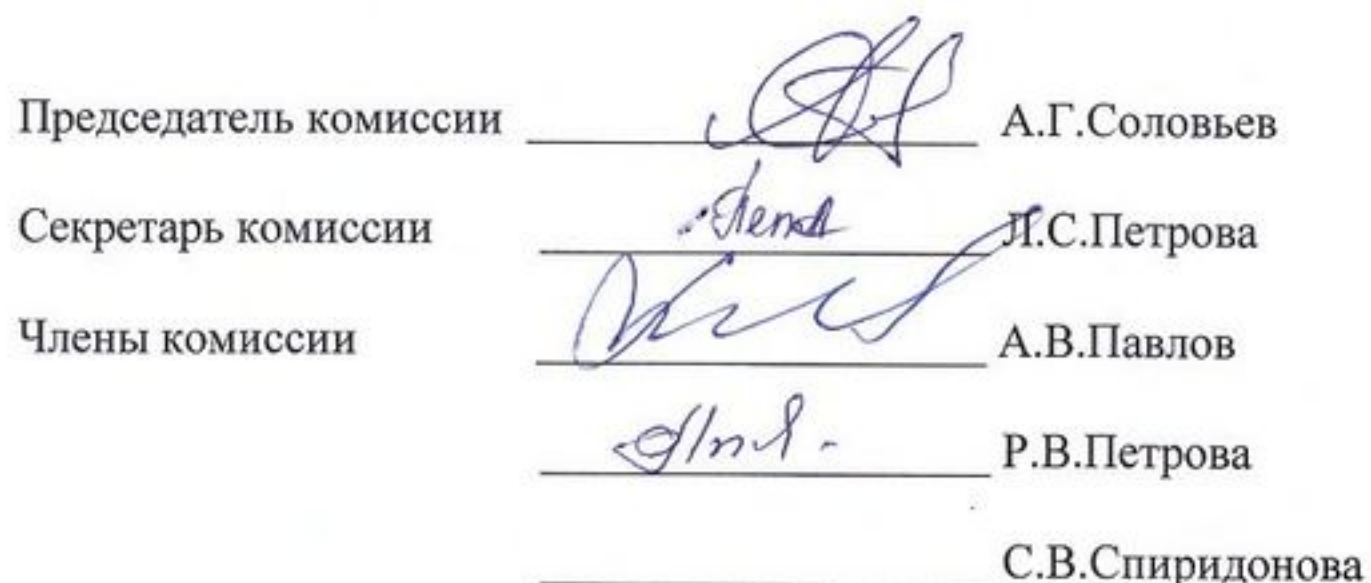 Председатель комиссии А.Г.Соловьев
Секретарь комиссии Л.С.Петрова
Члены комиссии А.В.Павлов
Р.В.Петрова
С.В.Спиридонова